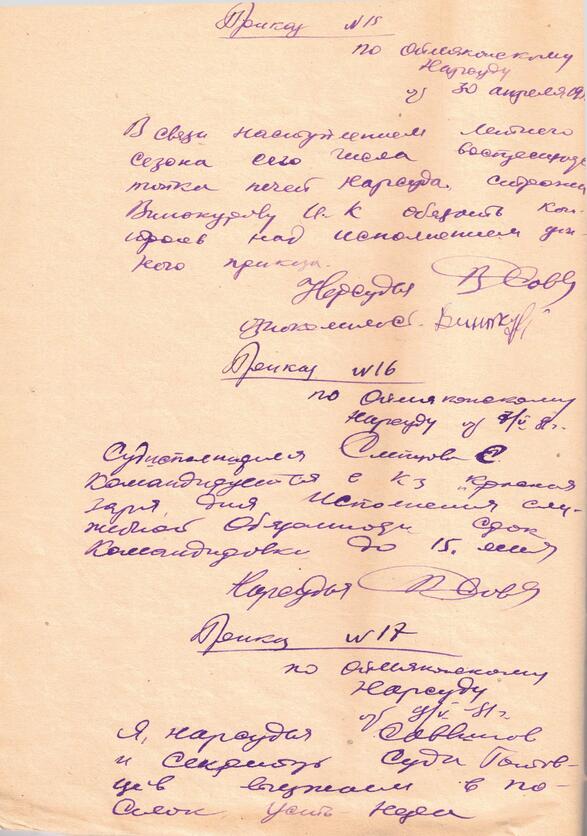 Приказ №15
по Оймяконскому
Нарсуду
от 30 апреля
В связи наступлением летнего
сезона сего числа
топка печей Нарсуда.
Винокурову И. К обязать кон-
троль над исполнением дан-
ного приказа.
Нарсудья
ознакомился. Винокур
Приказ №16
по Оймяконскому
Нарсуду от
Судисполнителя Слепцова С.
командируется в к-з "Красная
заря" для исполнения слу-
жебной обязанности. Срок
командировки до 15. мая
Нарсудья
Приказ №17
по Оймяконскому
Нарсуду
от
Я, нарсудья Саввинов
и секретарь суда Готов-
цев выезжаем в по-
селок Усть-Нера